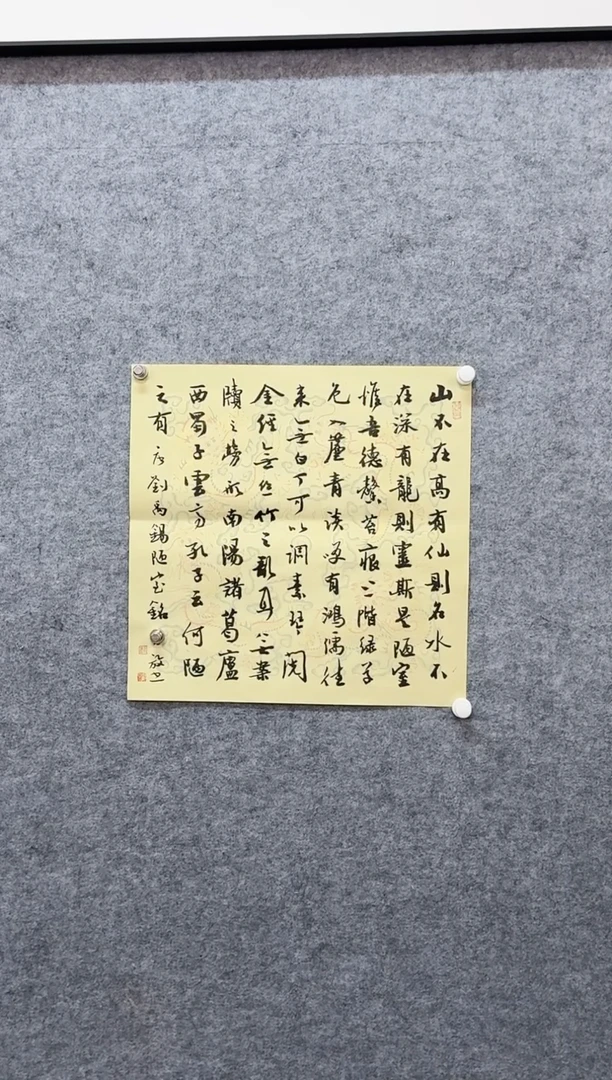 山不在高有仙則名水不
在深有龍則靈斯是陋室
惟吾德馨苔痕上階緑草
色入簾青談咲有鴻儒往
来無白丁可以調素琴閲
金經無丝竹之亂耳無案
牘之勞形南陽諸葛廬
西蜀子雲亭孔子云何陋
之有 唐劉禹錫陋室銘